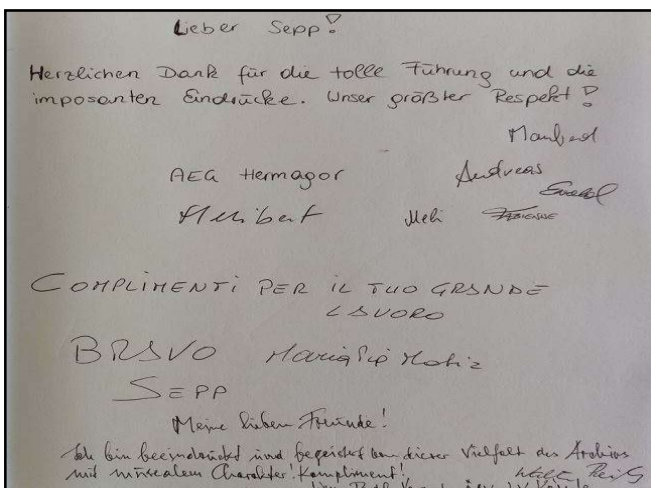 Lieber Sepp!
Herzlichen Dank für die tolle Führung und die
imposanten Eindrücke. Unser größter Respekt!
Manfred
AEG Hermagor Andreas
Ewald
Heribert Meli FABIENNE
COMPLIMENTI PER IL TUO GRANDE
LAVORO
BRAVO Maria Pia Motiz
SEPP
Meine lieben Freunde!
Ich bin beeindruckt und begeistert von dieser Vielfalt des Archivs
mit musealem Charakter! Kompliment!